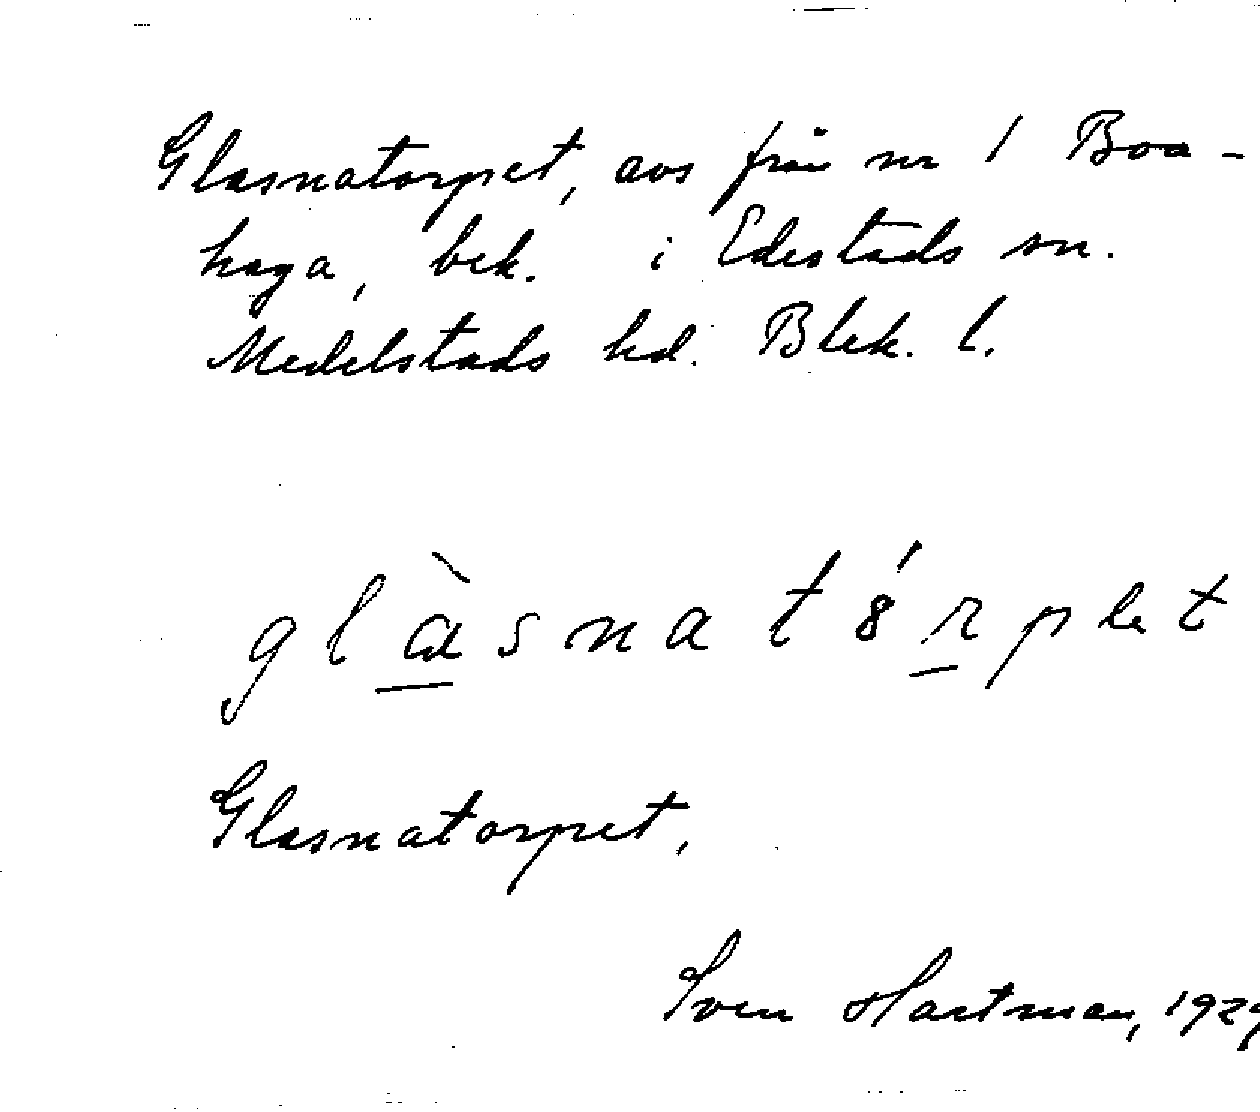 Glasnatorpet, avs från nr 1 Boa-
haga, bek. i Edestads sn.
Medelstads hd. Blek. l.
Glasnatorpet,
Sven Hartman, 1929